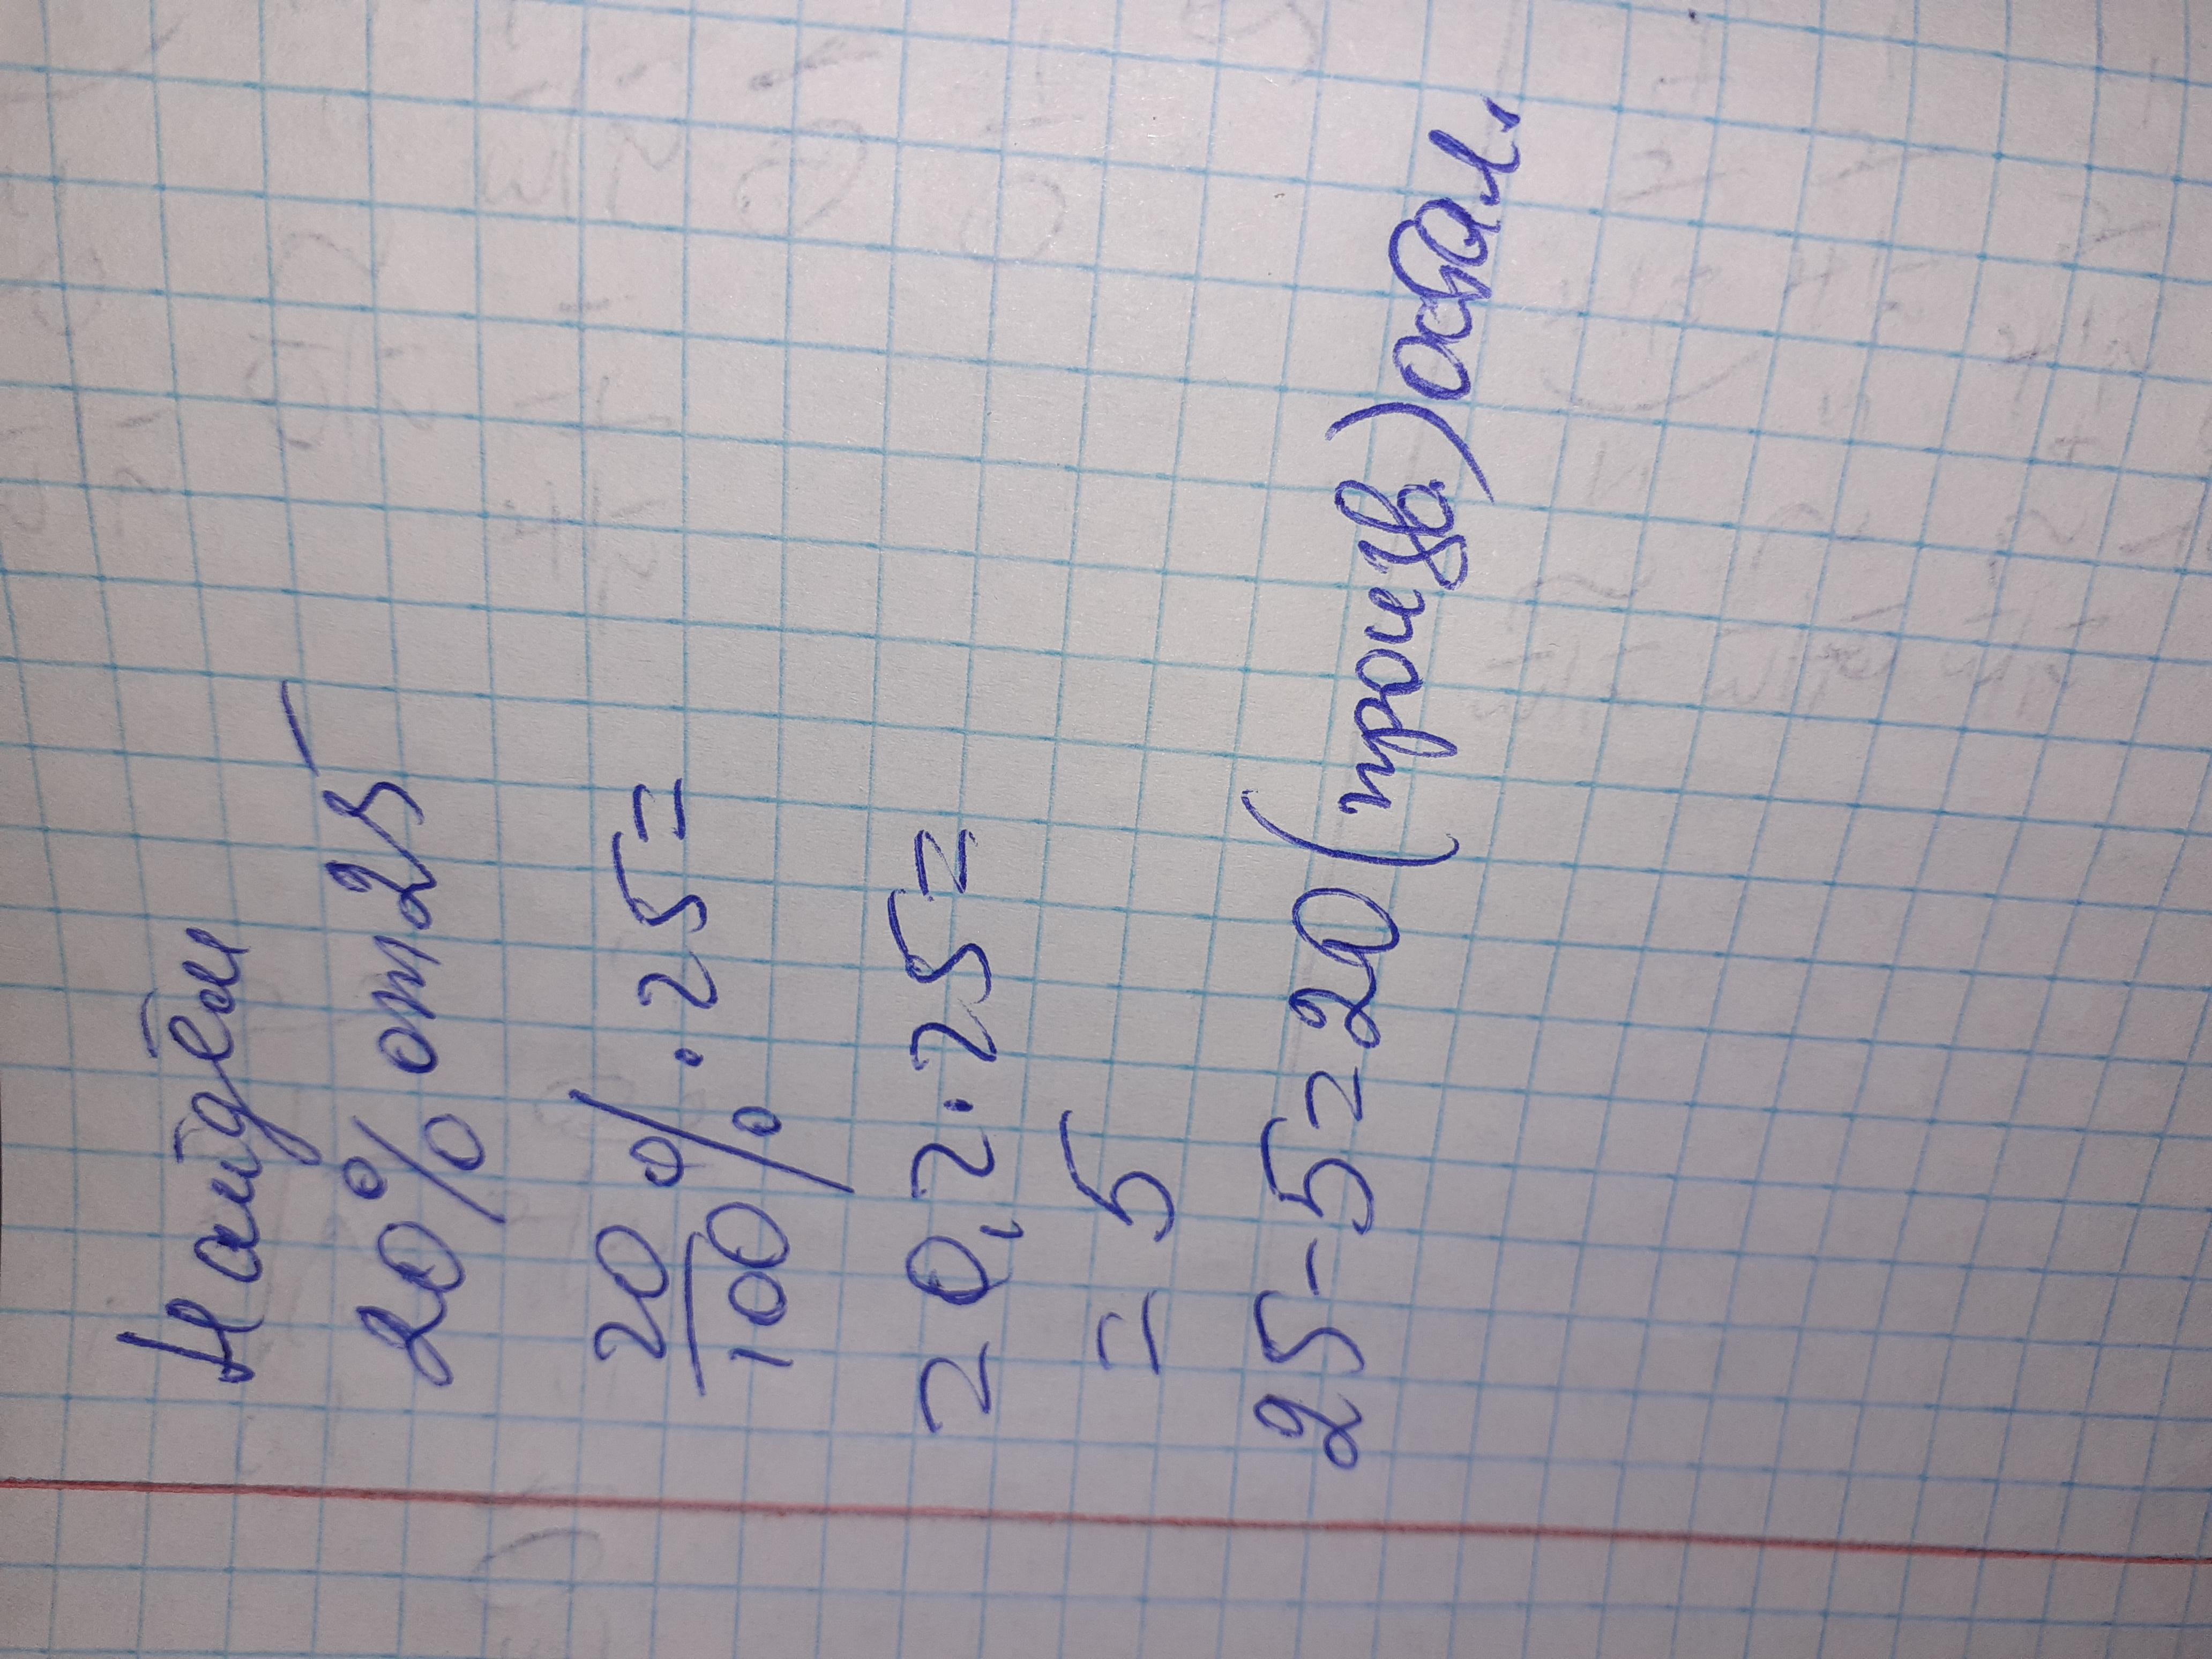 Найдём
20% от 25
20/100% · 25 =
= 0,2 · 25 =
= 5
25 - 5 = 20 (произв) остал.